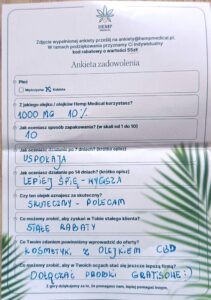 HEMP
MEDICAL
Zdjęcie wypełnionej ankiety prześlij na ankiety@hempmedical.pl.
W ramach podziękowania przyznamy Ci indywidualny
kod rabatowy o wartości 55zł!
Ankieta zadowolenia
Płeć
Mężczyzna Kobieta
Z jakiego olejku / olejków Hemp Medical korzystasz?
1000 MG 10%
Jak oceniasz sposób zapakowania? (w skali od 1 do 10)
10
Jak oceniasz działanie po 7 dniach? (krótko opisz)
USPOKAJA
Jak oceniasz działanie po 14 dniach? (krótko opisz)
LEPIEJ ŚPIĘ - WYŻSZA
Czy ten olejek uznajesz za skuteczny?
SKUTECZNY - POLECAM
Co możemy zrobić, aby zyskać w Tobie stałego klienta?
STAŁE RABATY
Co Twoim zdaniem powinniśmy wprowadzić do oferty?
KOSMETYKI Z OLEJKIEM CBD
Co możemy zrobić, aby w Twoich oczach stać się jeszcze lepszą firmą?
DOŁĄCZAĆ PRÓBKI GRATISOWE!
Z góry dziękujemy za to, że pomagasz nam, lepiej pomagać innym.